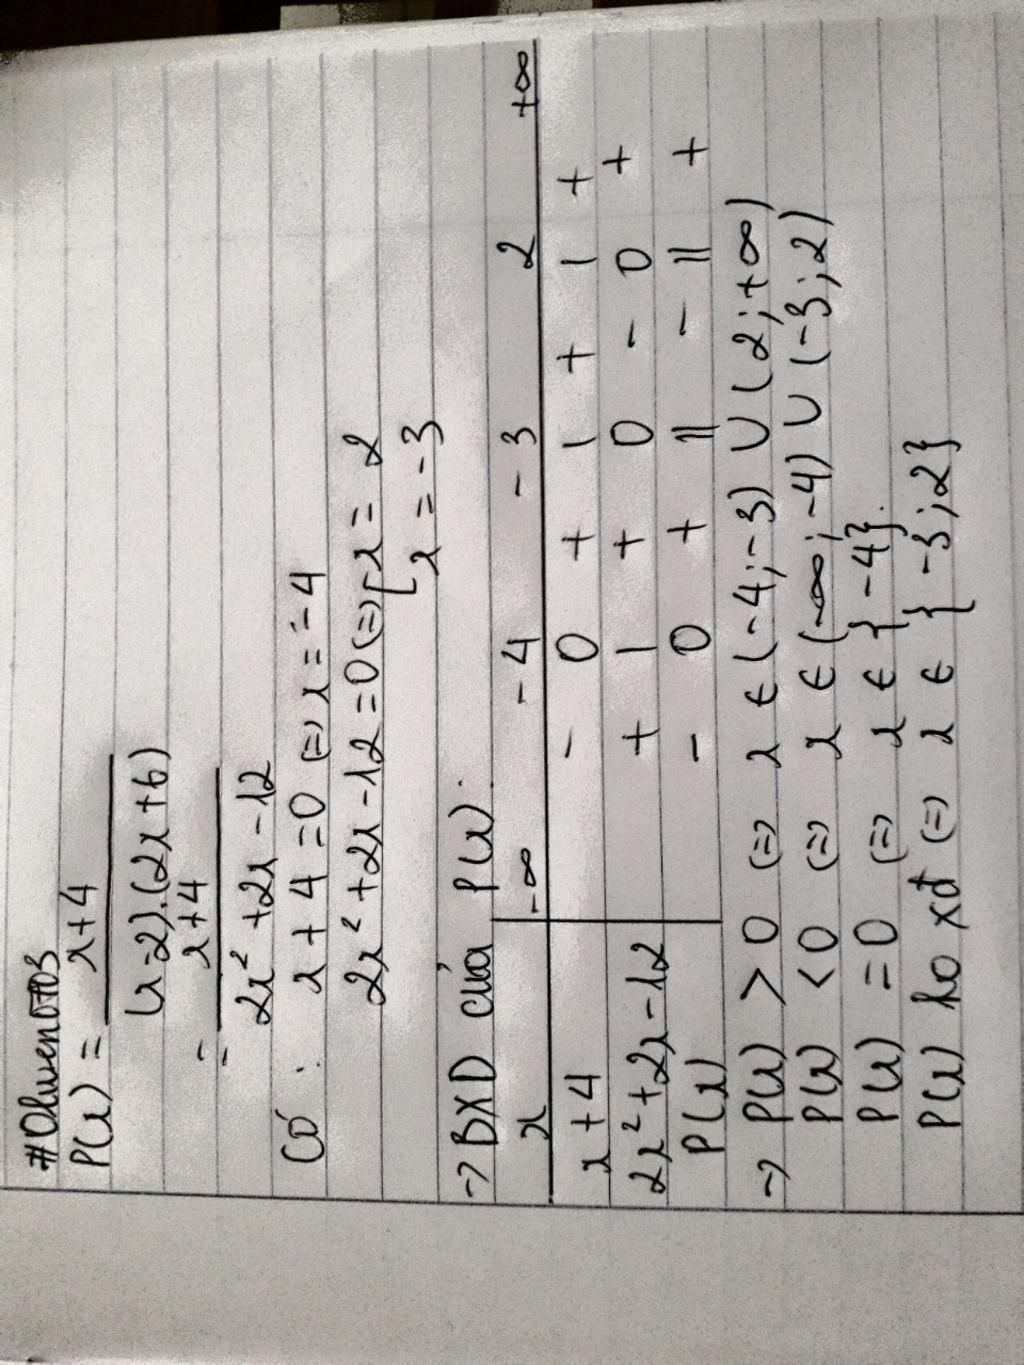 #Oliwento3
P(x) = x+4
(x-2).(2x+6)
= x+4
2x² +2x -12
Có : x + 4 = 0 (=) x = -4
2x² +2x -12 = 0 (=) [ x = 2
x = -3
-> BXD của P(x).
x -∞ -4 -3 2 +∞
x + 4 - 0 + | + | +
2x² +2x -12 + | + 0 - 0 +
P(x) - 0 + || - || +
-> P(x) > 0 (=) x ∈ (-4;-3) ∪ (2;+∞)
P(x) < 0 (=) x ∈ (-∞;-4) ∪ (-3;2)
P(x) = 0 (=) x ∈ {-4}.
P(x) ko xđ (=) x ∈ {-3;2}